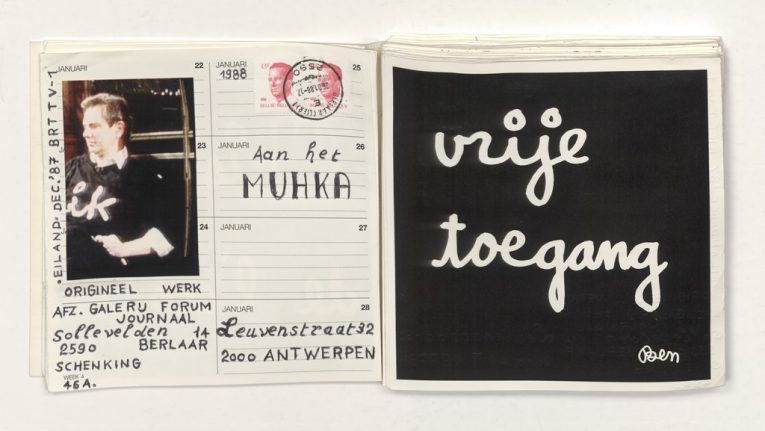 JANUARI 22
EILAND. DEC.'87 BRT TV-1
ik
23
24
ORIGINEEL WERK
AFZ. GALERIJ FORUM
JOURNAAL
Sollevelden 14
2590 BERLAAR
SCHENKING
WEEK 4
46A.
JANUARI 25
1988
2590
JANUARI 26
Aan het
MUHKA
JANUARI 27
JANUARI 28
Leuvenstraat 32
2000 ANTWERPEN
vrije
toegang
Ben